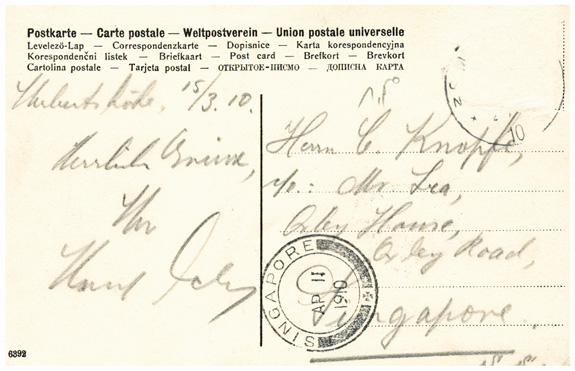 Postkarte — Carte postale — Weltpostverein — Union postale universelle
Levelező-Lap — Correspondenzkarte — Dopisnice — Karta korespondencyjna
Korespondenční listek — Briefkaart — Post card — Brefkort — Brevkort
Cartolina postale — Tarjeta postal — ОТКРЫТОЕ-ПИСМО — ДОПИСНА КАРТА
Herbertshöhe, 15/3.10.
Herrlich Grüsse,
Ihr
Herrn C. Knopff,
c/o: Mr. Lea,
Oxley House,
Oxley Road,
Singapore.
SINGAPORE
AP 11
1910
10
6392